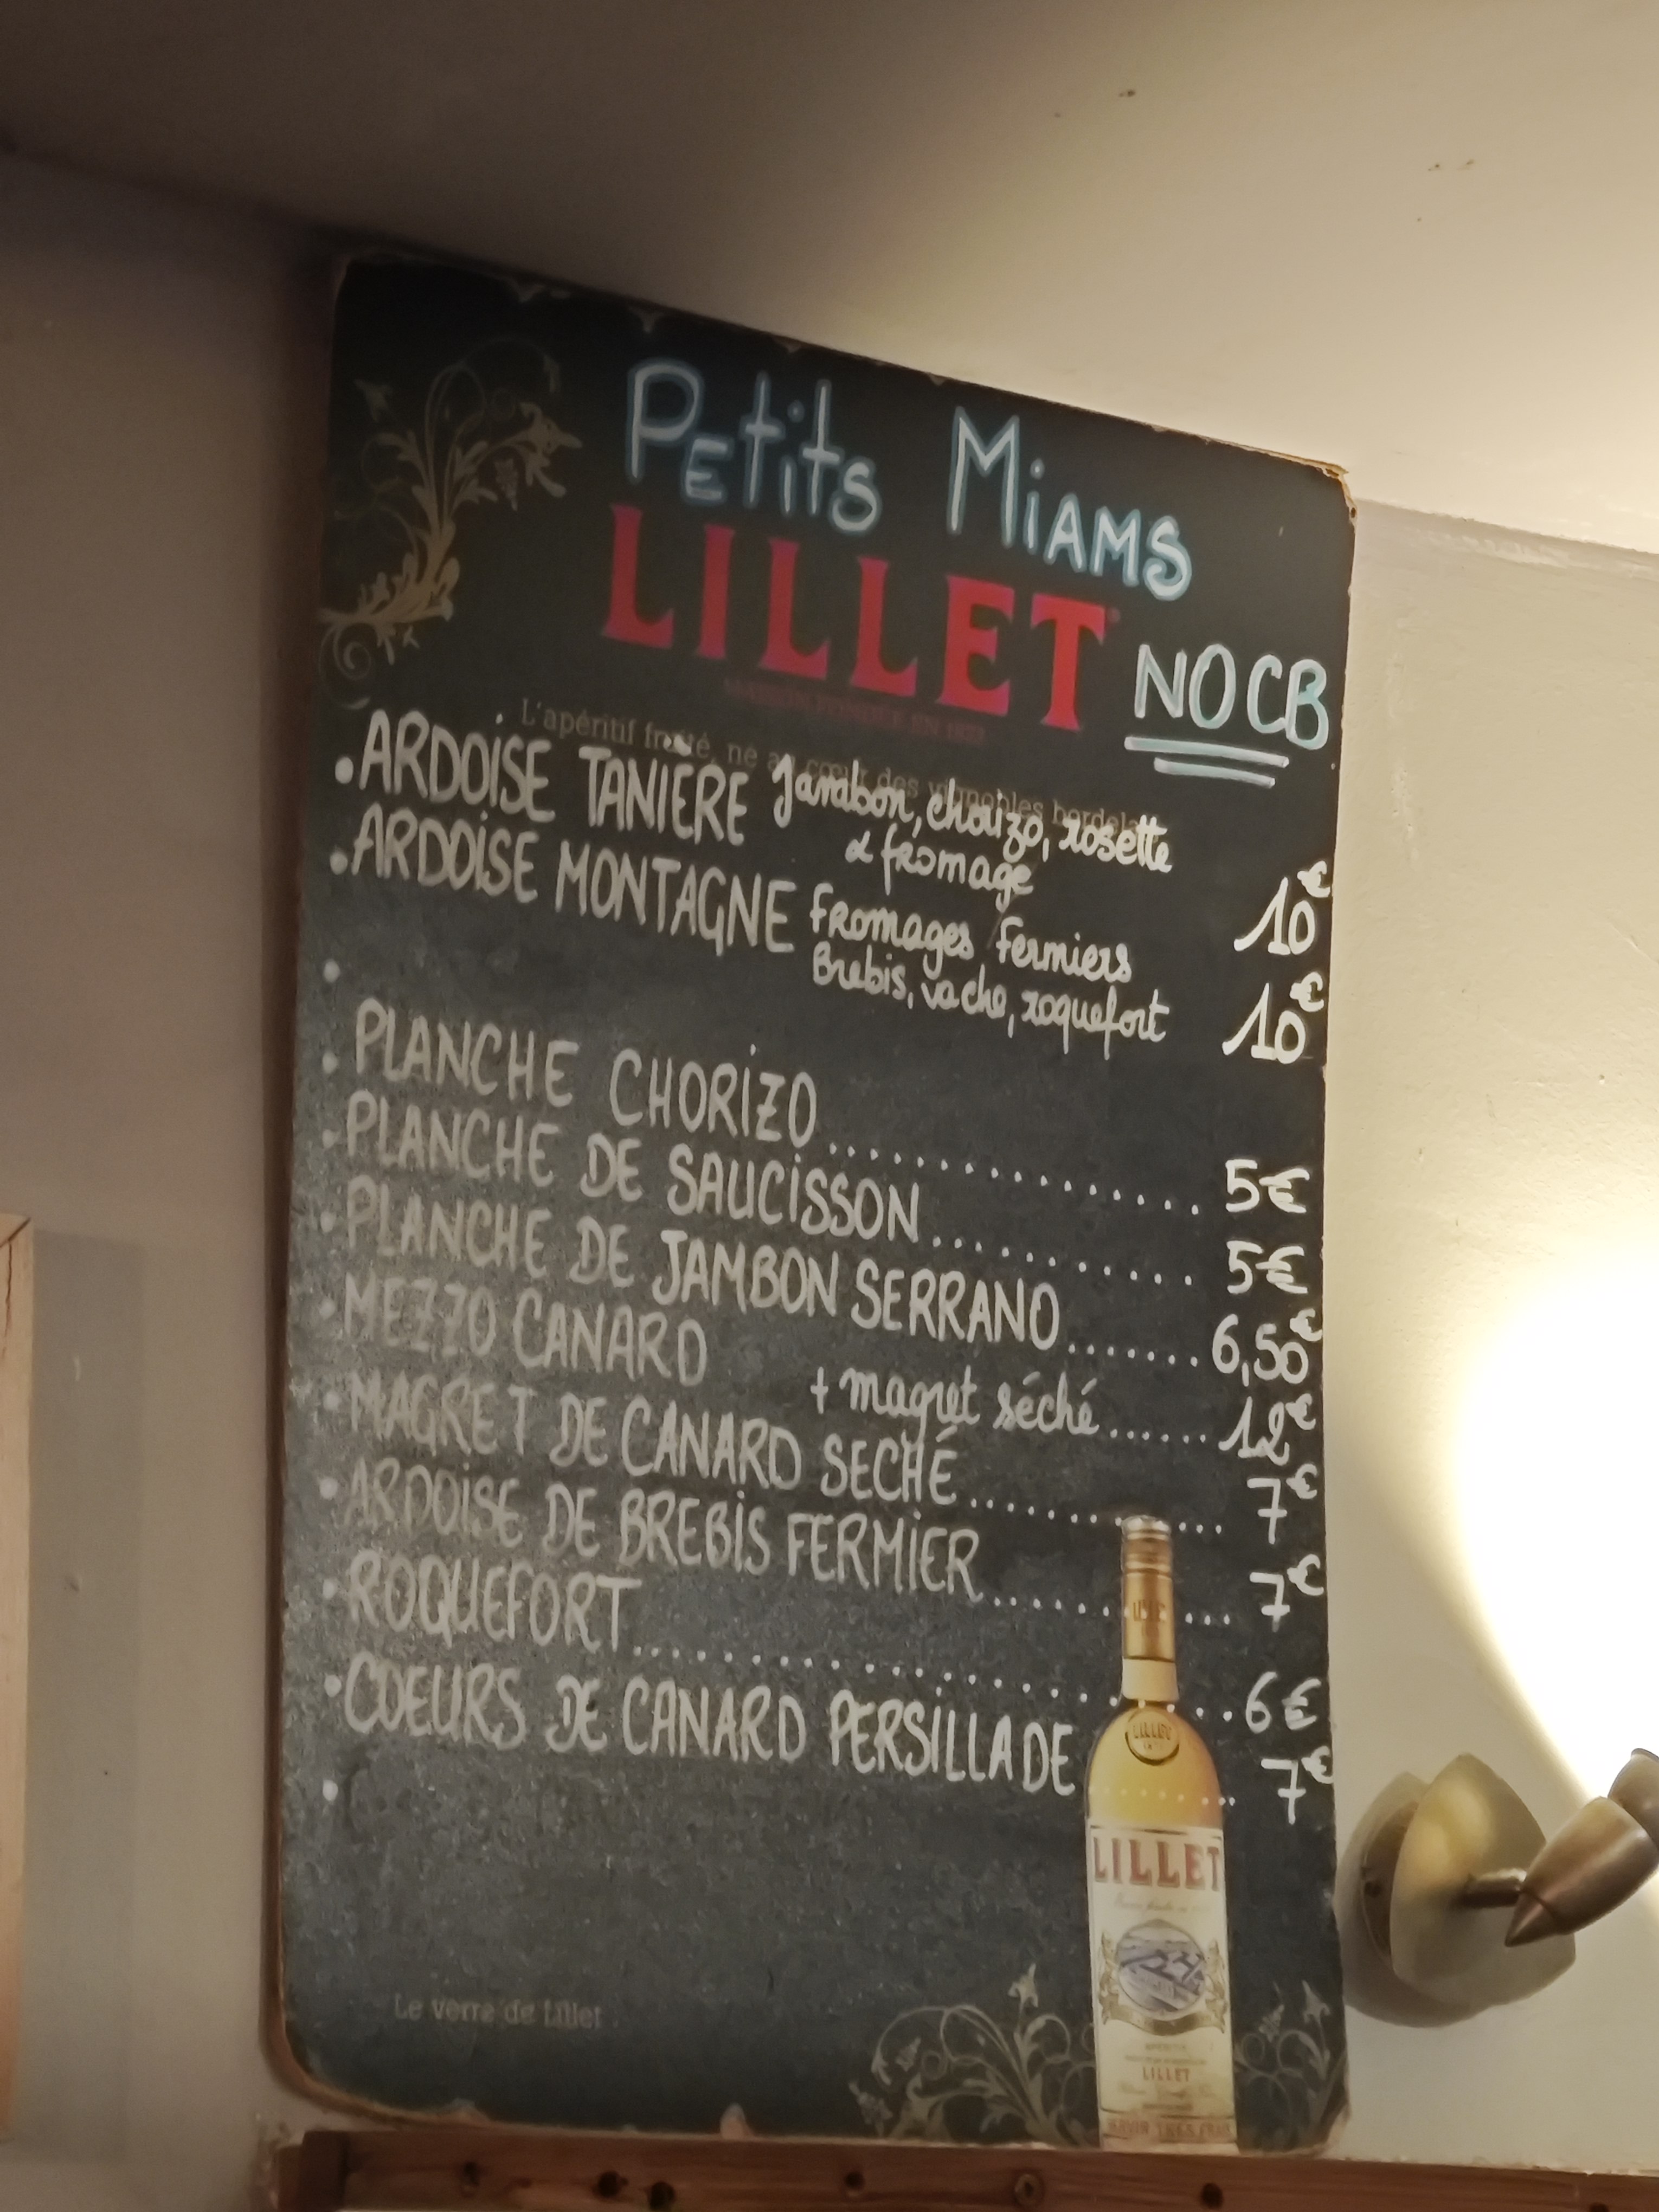 Petits Miams
LILLET
NO CB
L'apéritif fruité, né au cœur des vignobles bordelais
• ARDOISE TANIÈRE Jambon, chorizo, rosette
& fromage 10€
• ARDOISE MONTAGNE Fromages Fermiers
Brebis, vache, roquefort 10€
•
• PLANCHE CHORIZO.................. 5€
• PLANCHE DE SAUCISSON........... 5€
• PLANCHE DE JAMBON SERRANO....... 6,50€
• MEZZO CANARD + magret séché...... 12€
• MAGRET DE CANARD SECHÉ........... 7€
• ARDOISE DE BREBIS FERMIER.......... 7€
• ROQUEFORT........................ 6€
• COEURS DE CANARD PERSILLADE....... 7€
•
LILLET
LILLET
LILLET
Le verre de Lillet